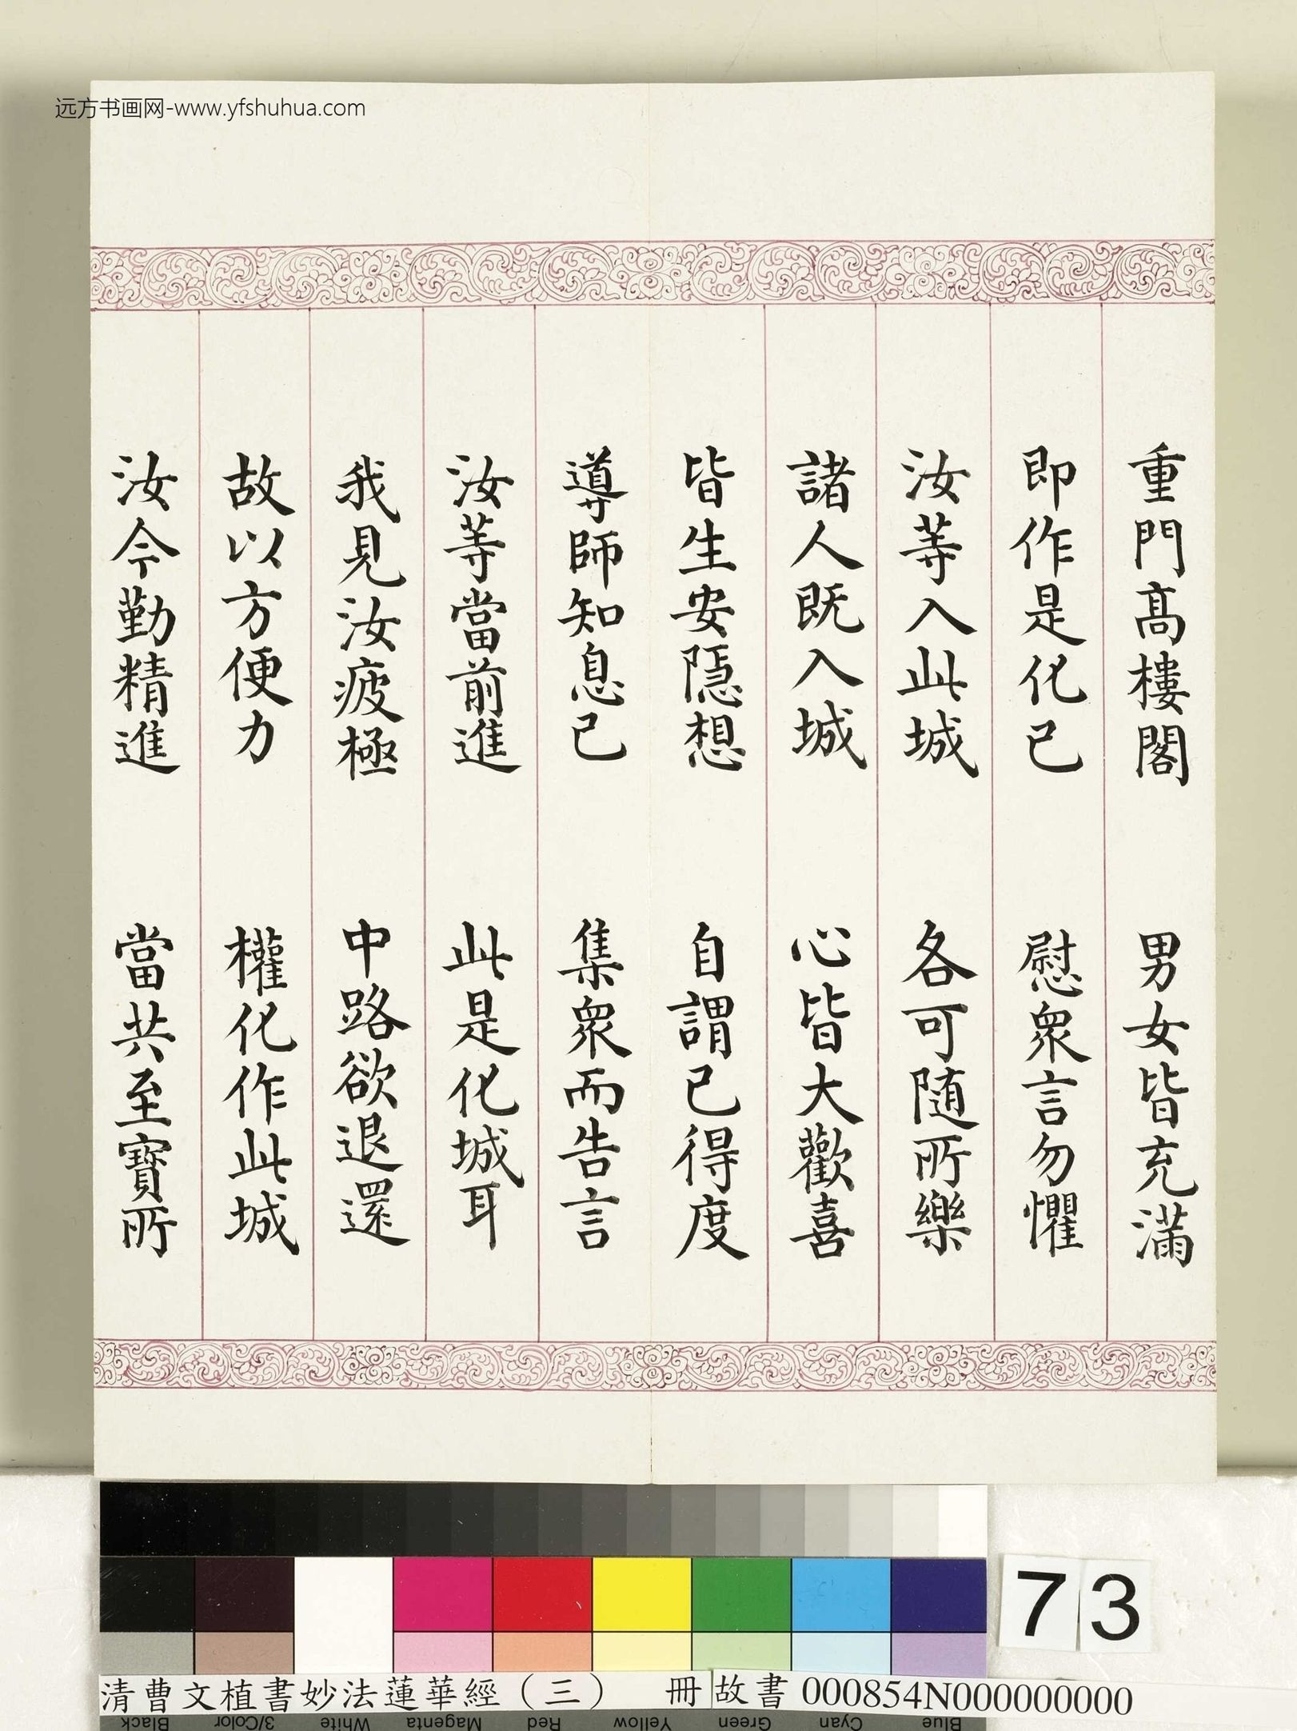 远方书画网-www.yfshuhua.com
重門髙樓閣 男女皆充滿
即作是化已 慰衆言勿懼
汝等入此城 各可随所樂
諸人既入城 心皆大歡喜
皆生安隱想 自謂已得度
導師知息已 集衆而告言
汝等當前進 此是化城耳
我見汝疲極 中路欲退還
故以方便力 權化作此城
汝今勤精進 當共至寶所
73
清曹文植書妙法蓮華經（三） 冊 故書 000854N000000000
Black 3/Color White Magenta Red Yellow Green Cyan Blue